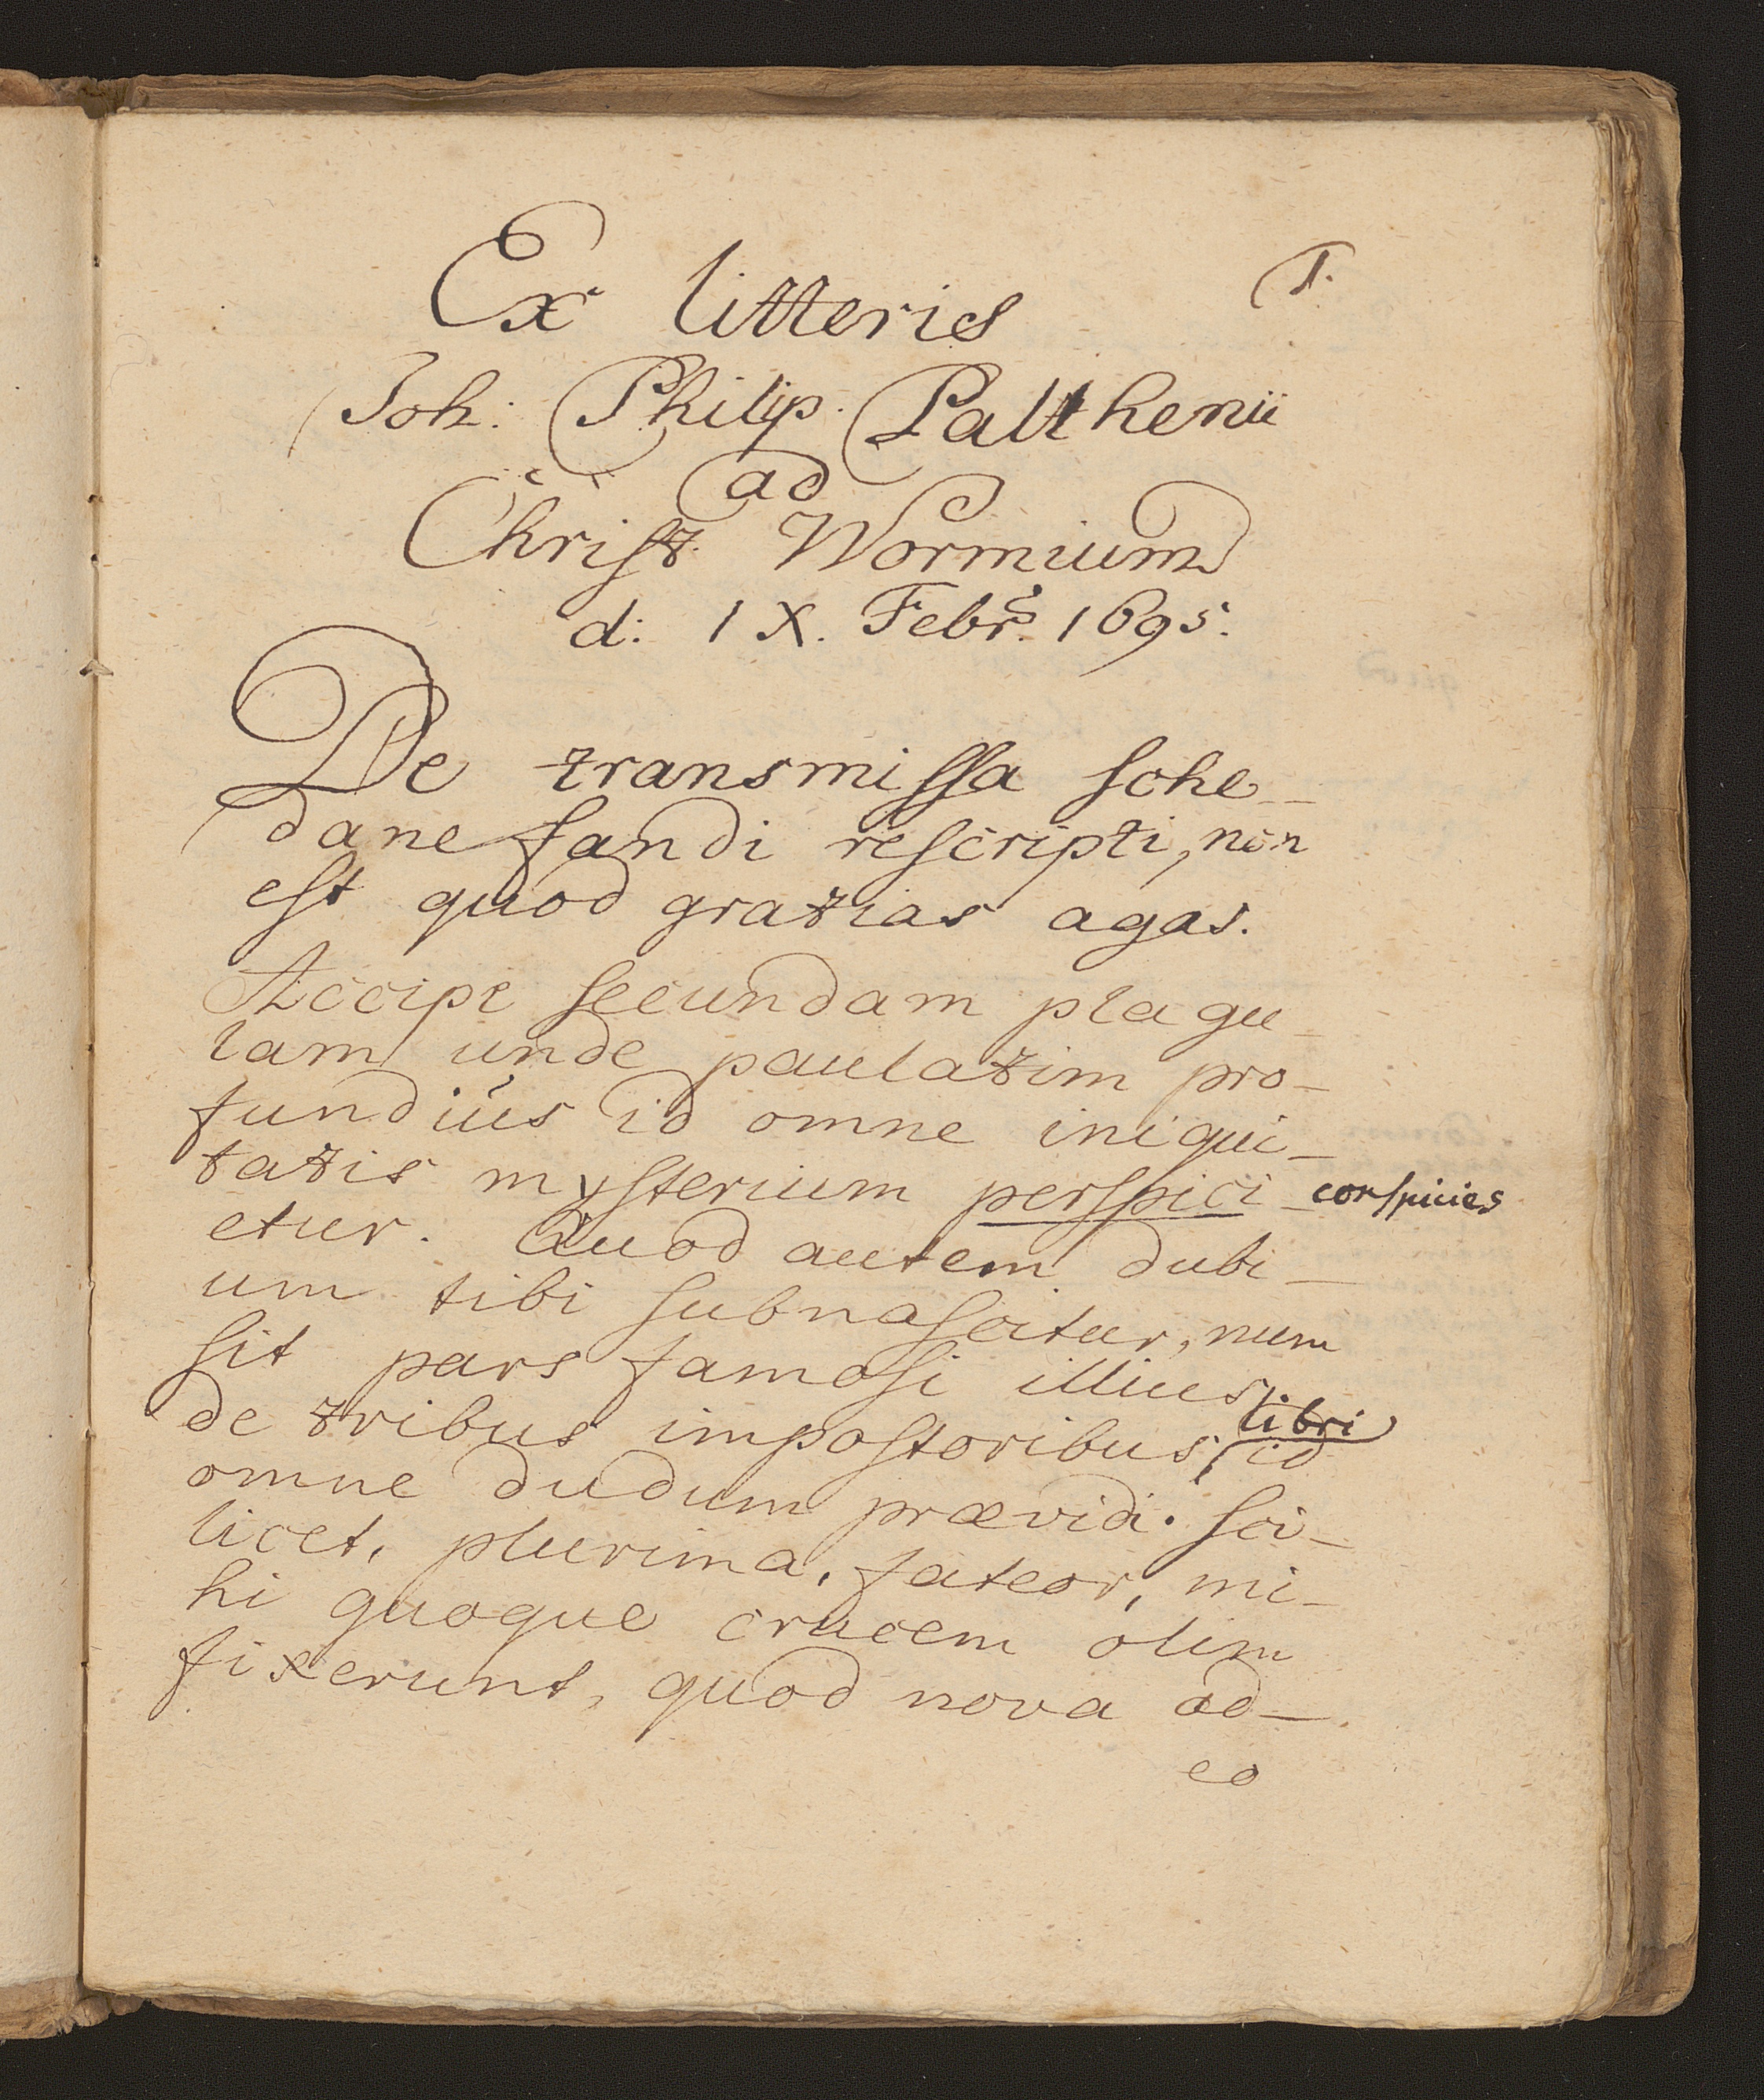 Ex litteris
1.
Joh: Philip. Palthenii
ad
Christ. Wormium
d: IX. Febr. 1695.
De transmissa sche-
da nefandi rescripti, non
est quod gratias agas.
Accipe secundam plagu-
lam unde paulatim pro-
fundius id omne iniqui-
tatis mysterium perspici- conspicies
etur. Quod autem dubi-
um tibi subnascitur, num
sit pars famosi illius
libri
de tribus impostoribus, id
omne dudum prævidi. Sci-
licet, plurima, fateor, mi-
hi quoque crucem olim
fixerunt, quod nova ad-
eo